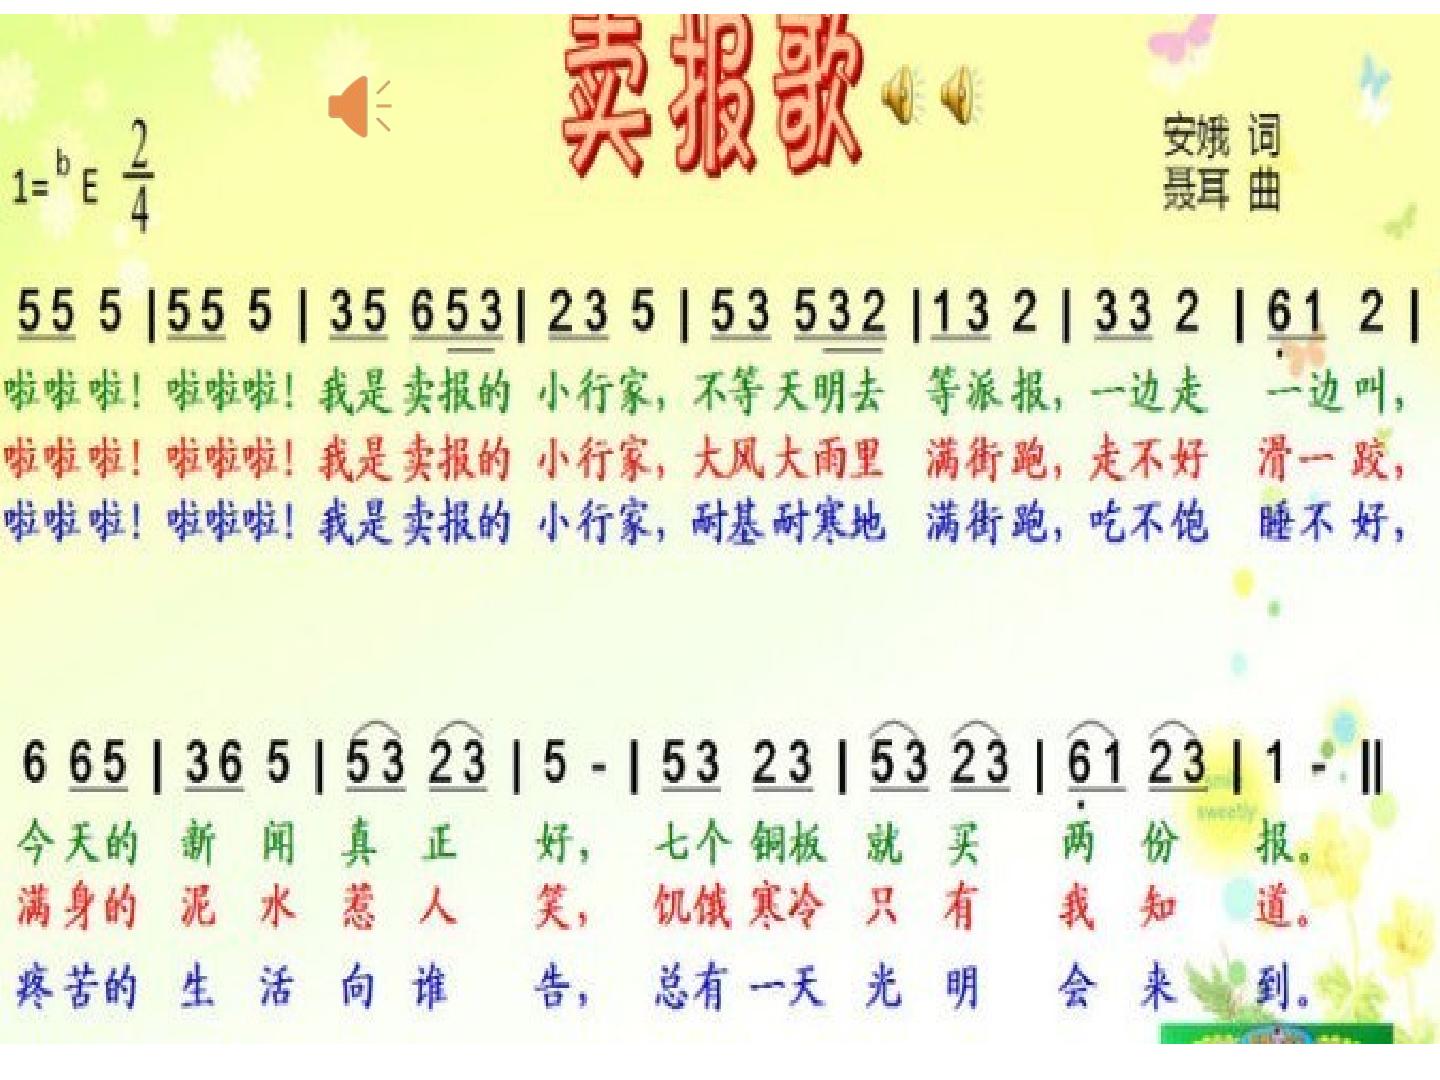 卖报歌
安娥 词
1=ᵇE 2/4
聂耳 曲
55 5 | 55 5 | 35 653 | 23 5 | 53 532 | 13 2 | 33 2 | 6̣1 2 |
啦啦啦! 啦啦啦! 我是卖报的 小行家, 不等天明去 等派报, 一边走 一边叫,
啦啦啦! 啦啦啦! 我是卖报的 小行家, 大风大雨里 满街跑, 走不好 滑一跤,
啦啦啦! 啦啦啦! 我是卖报的 小行家, 耐基耐寒地 满街跑, 吃不饱 睡不好,
6 65 | 36 5 | 53 23 | 5 - | 53 23 | 53 23 | 6̣1 23 | 1 - ||
smile
sweetly
今天的 新 闻 真 正 好, 七个铜板 就 买 两 份 报。
满身的 泥 水 惹 人 笑, 饥饿寒冷 只 有 我 知 道。
疼苦的 生 活 向 谁 告, 总有一天 光 明 会 来 到。